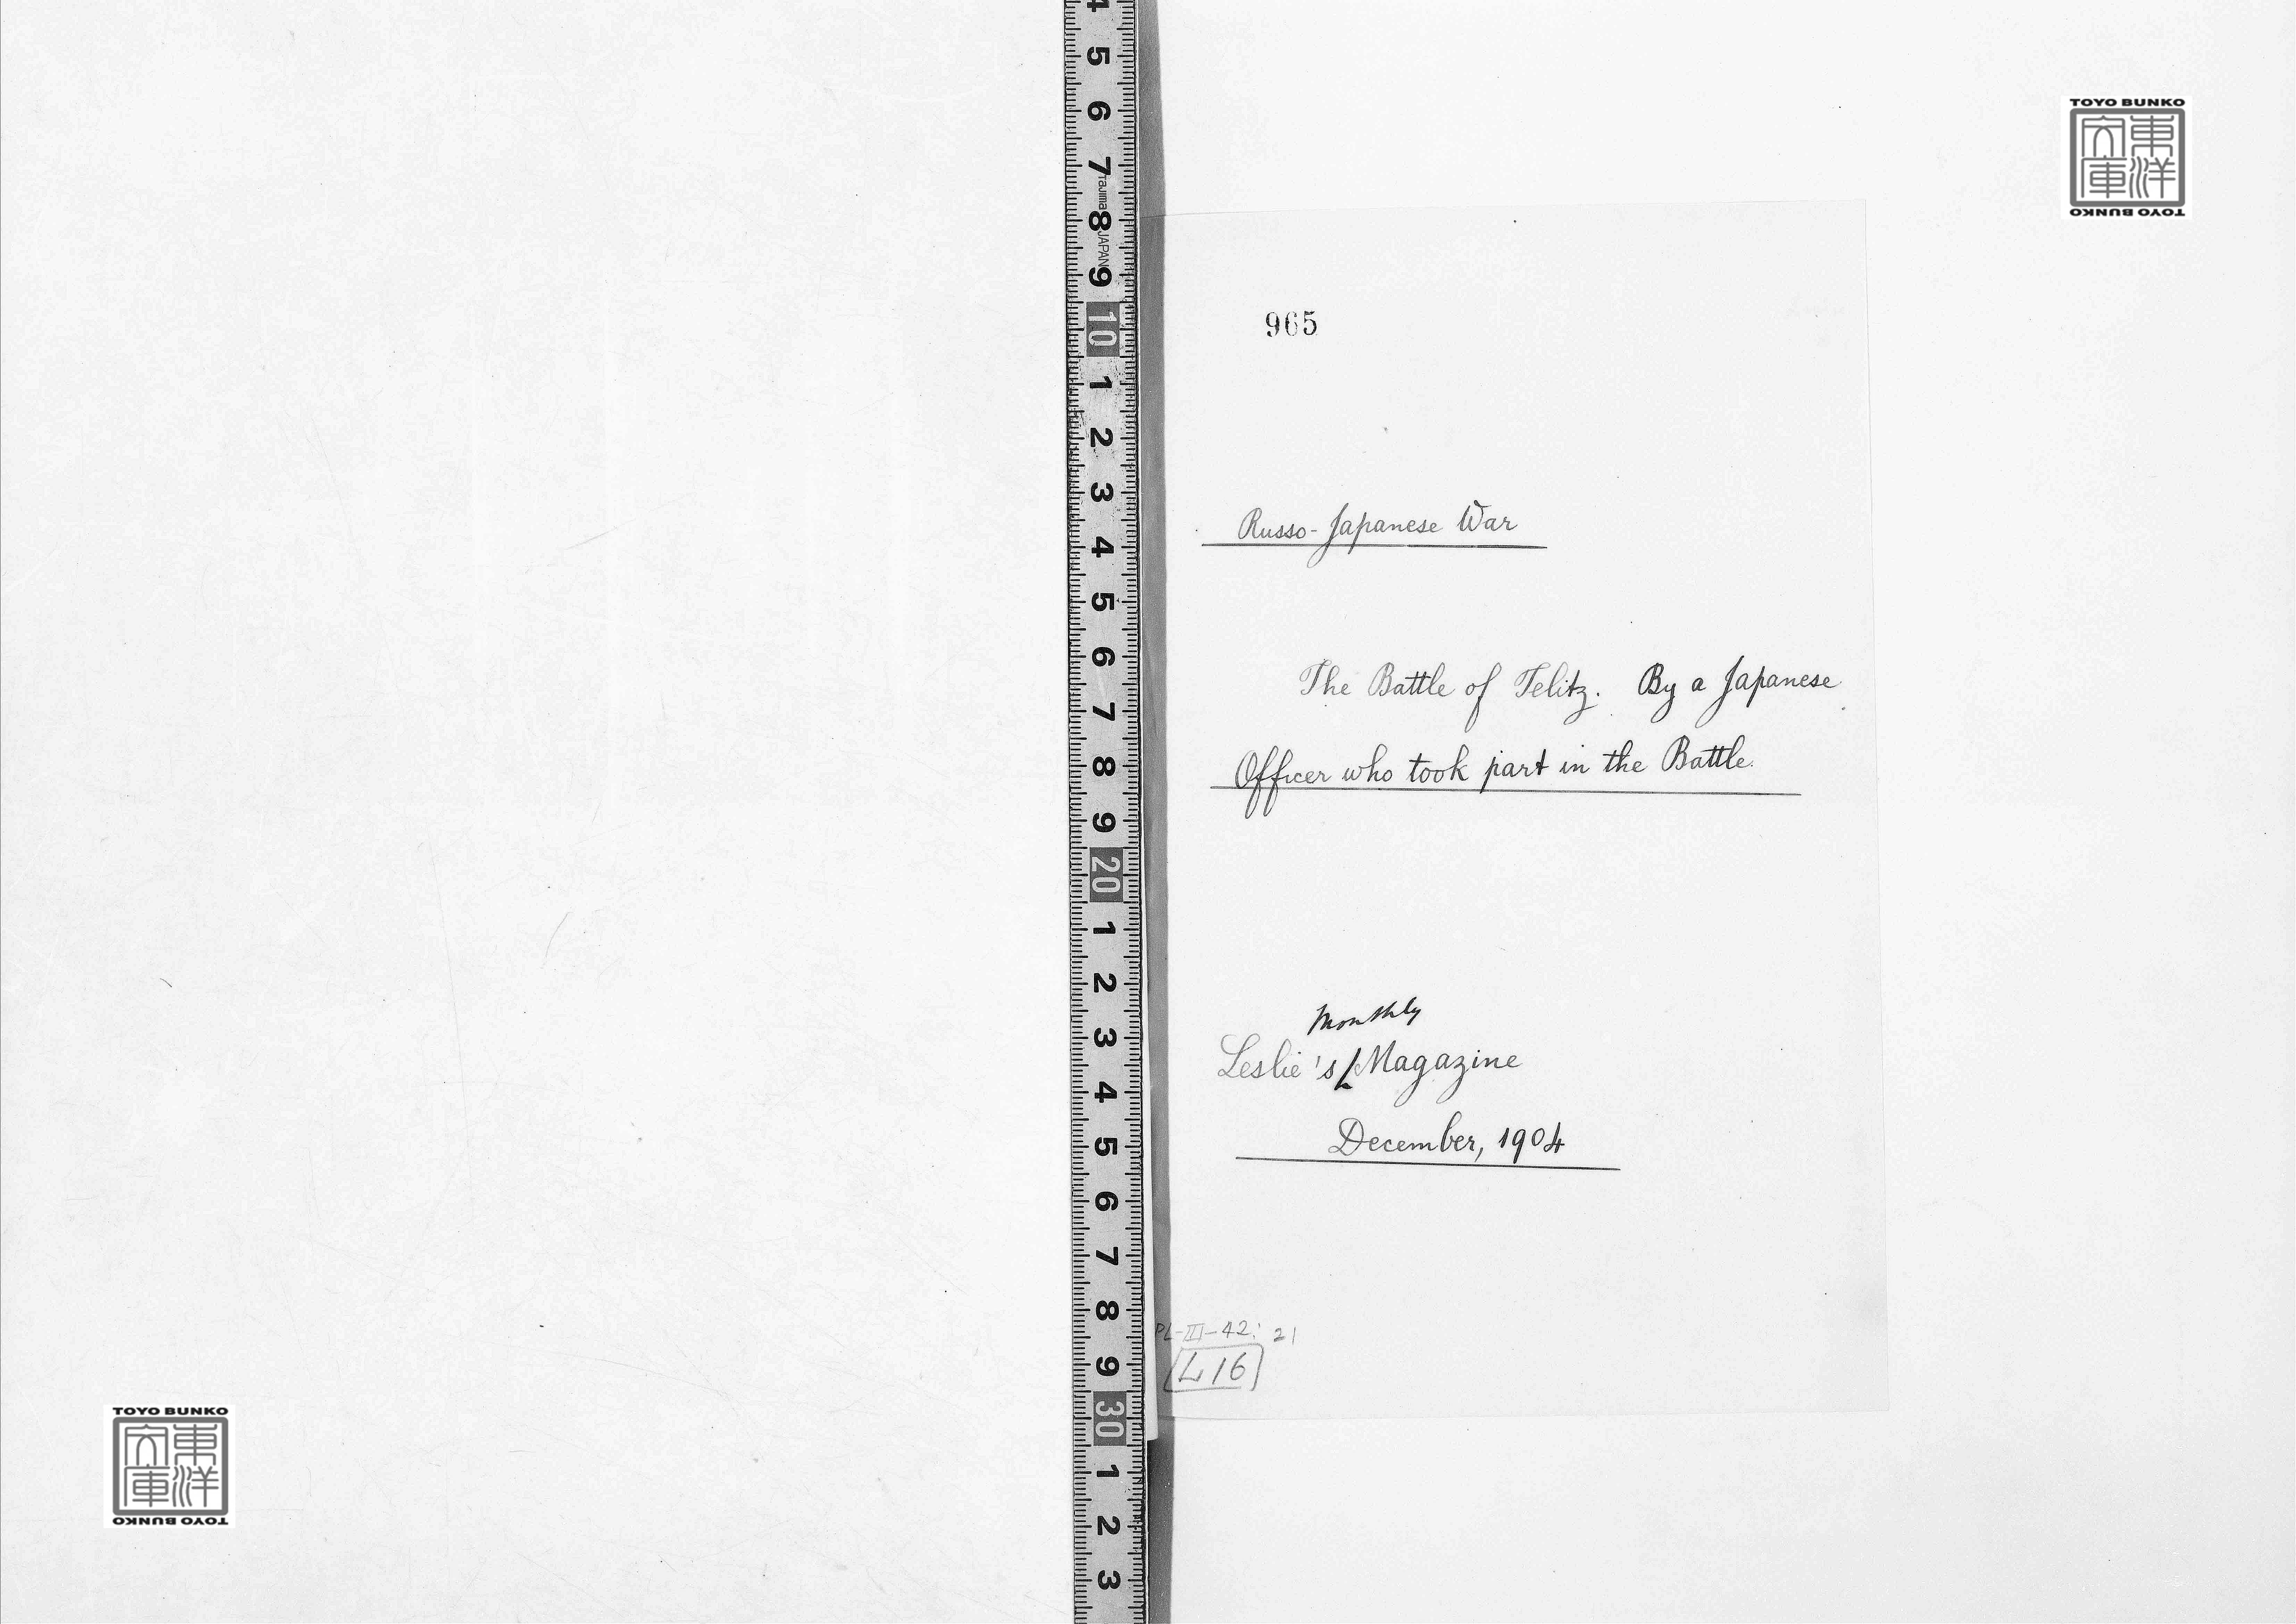 965
Russo-Japanese War
The Battle of Telitz. By a Japanese
Officer who took part in the Battle.
Monthly
Leslie's Magazine
December, 1904
PL-III-42: 21
L16
TOYO BUNKO
東洋
文庫
TOYO BUNKO
TOYO BUNKO
東洋
文庫
TOYO BUNKO
4
5
6
7
Tajima
8
JAPAN
9
10
1
2
3
4
5
6
7
8
9
20
1
2
3
4
5
6
7
8
9
30
1
2
3